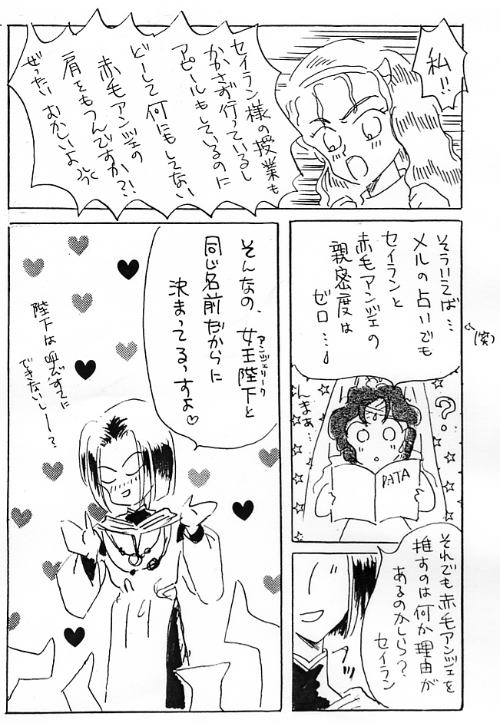 私!!
セイラン様の授業も
かかさず行っているし
アピールもしているのに
どーして何にもしてない
赤毛アンジェの
肩をもつんですか?!
ぜったいおかしいよ
そういえば…
メルの占いでも
セイランと
赤毛アンジェの
親密度は
ゼロ…
(笑)
?
んまぁ…
DATA
それでも赤毛アンジェを
推すのは何か理由が
あるのかしら?
セイラン
そんなの、女王陛下と
アンジェリーク
同じ名前だからに
決まってるっすよ♡
陛下は呼びすてに
できないしー?